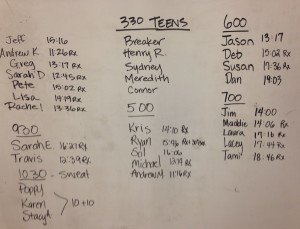 Jeff 15:16
Andrew K. 11:26 Rx
Greg 13:17 Rx
Sarah D 12:45 Rx
Pete 15:02 Rx
Lisa 14:19 Rx
Rachel 13:36 Rx
930
Sarah E 16:27 Rx
Travis 12:39 Rx
1030 - Sweat
Poppy
Karen
Stacy
10+10
330 TEENS
Breaker
Henry R.
Sydney
Meredith
Connor
500
Kris 14:10 Rx
Ryan 5:46 Rx
Sol 16:06
Michael 12:19 Rx
Andrew M. 11:16 Rx
600
Jason 13:17
Deb 15:02 Rx
Susan 17:36 Rx
Dan 19:03
700
Jim 14:00
Maddie 14:06 Rx
Laura 17:16 Rx
Lacey 17:44 Rx
Tami 18:46 Rx